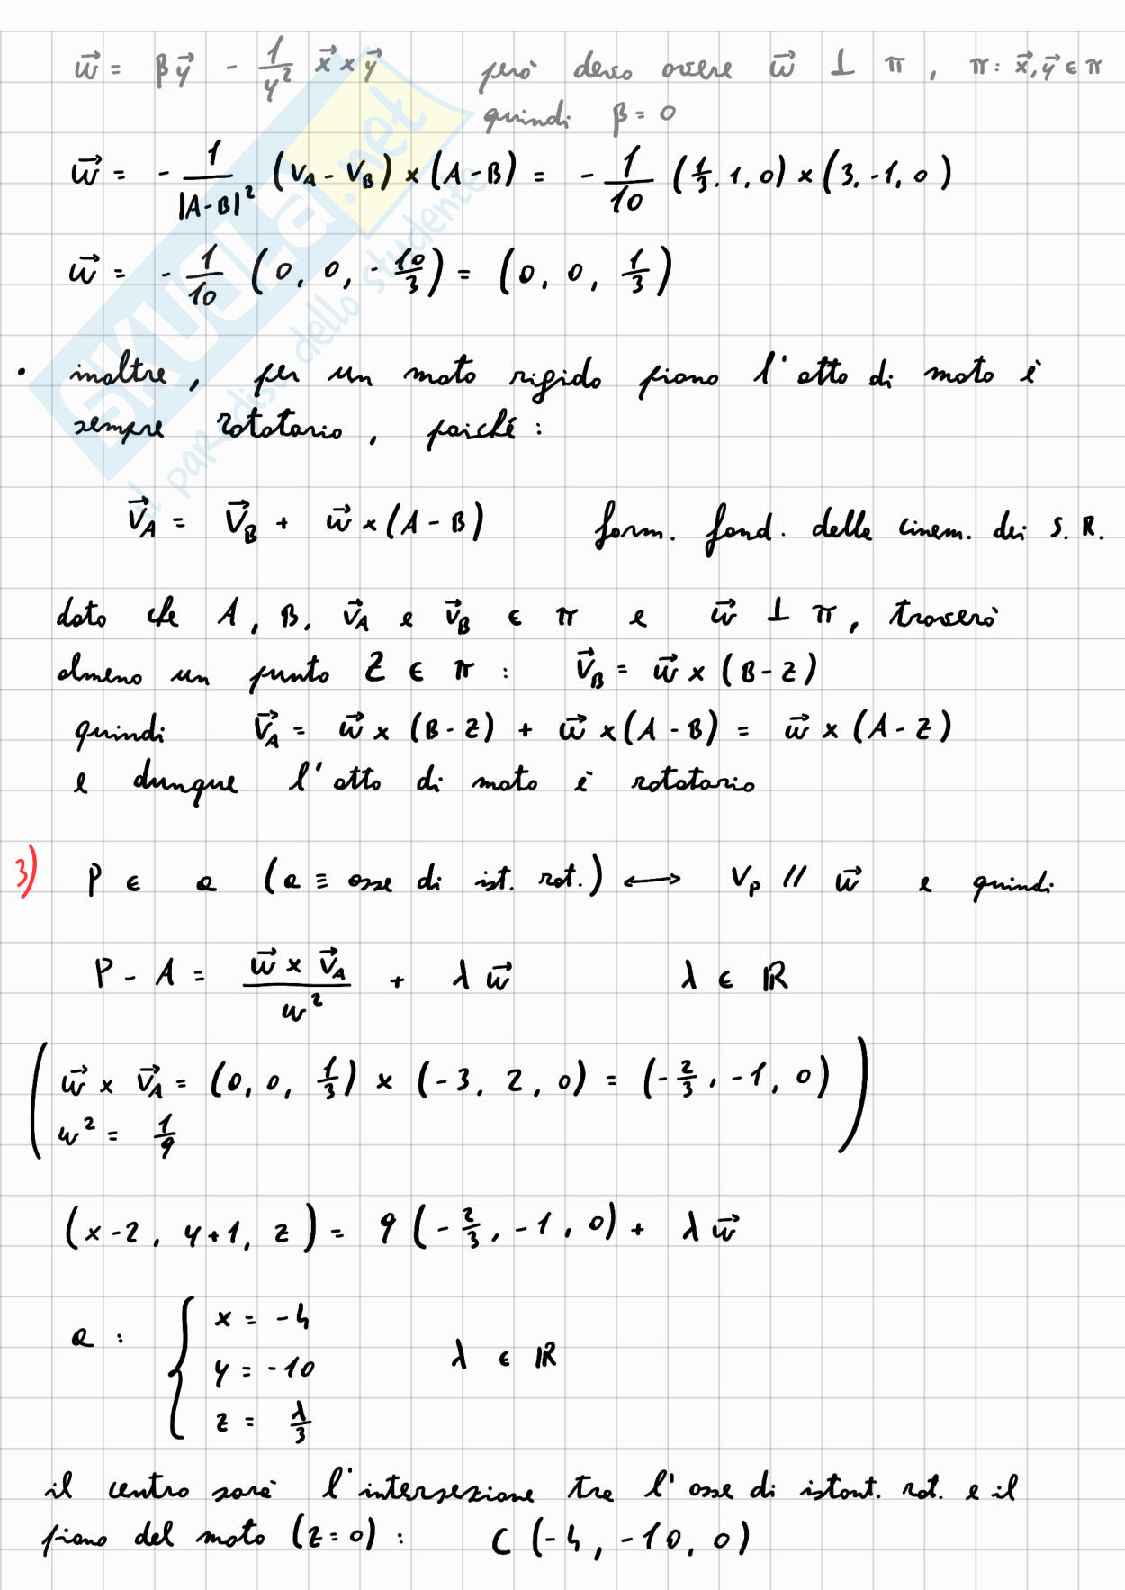 w⃗ = βy⃗ - 1/y² x⃗ × y⃗ però devo avere w⃗ ⊥ π, π: x⃗, y⃗ ∈ π
quindi β = 0
w⃗ = - 1/|A-B|² (V_A - V_B) × (A-B) = - 1/10 (1/3, 1, 0) × (3, -1, 0)
w⃗ = - 1/10 (0, 0, - 10/3) = (0, 0, 1/3)
• inoltre, per un moto rigido piano l'atto di moto è
sempre rotatorio, poiché:
V⃗_A = V⃗_B + w⃗ × (A - B) form. fond. della cinem. dei S.R.
dato che A, B, V⃗_A e V⃗_B ∈ π e w⃗ ⊥ π, troverò
almeno un punto Z ∈ π : V⃗_B = w⃗ × (B - Z)
quindi V⃗_A = w⃗ × (B - Z) + w⃗ × (A - B) = w⃗ × (A - Z)
e dunque l'atto di moto è rotatorio
3) P ∈ a (a ≡ asse di ist. rot.) ⟷ V_P // w⃗ e quindi
P - A = (w⃗ × V⃗_A)/w² + λ w⃗ λ ∈ ℝ
( w⃗ × V⃗_A = (0, 0, 1/3) × (-3, 2, 0) = (-2/3, -1, 0) )
w² = 1/9
(x-2, y+1, z) = 9 (-2/3, -1, 0) + λ w⃗
a : { x = -4
y = -10 λ ∈ ℝ
z = λ/3
il centro sarà l'intersezione tra l'asse di istant. rot. e il
piano del moto (z=0) : C (-4, -10, 0)
SKUOLA.net
il paradiso dello studente